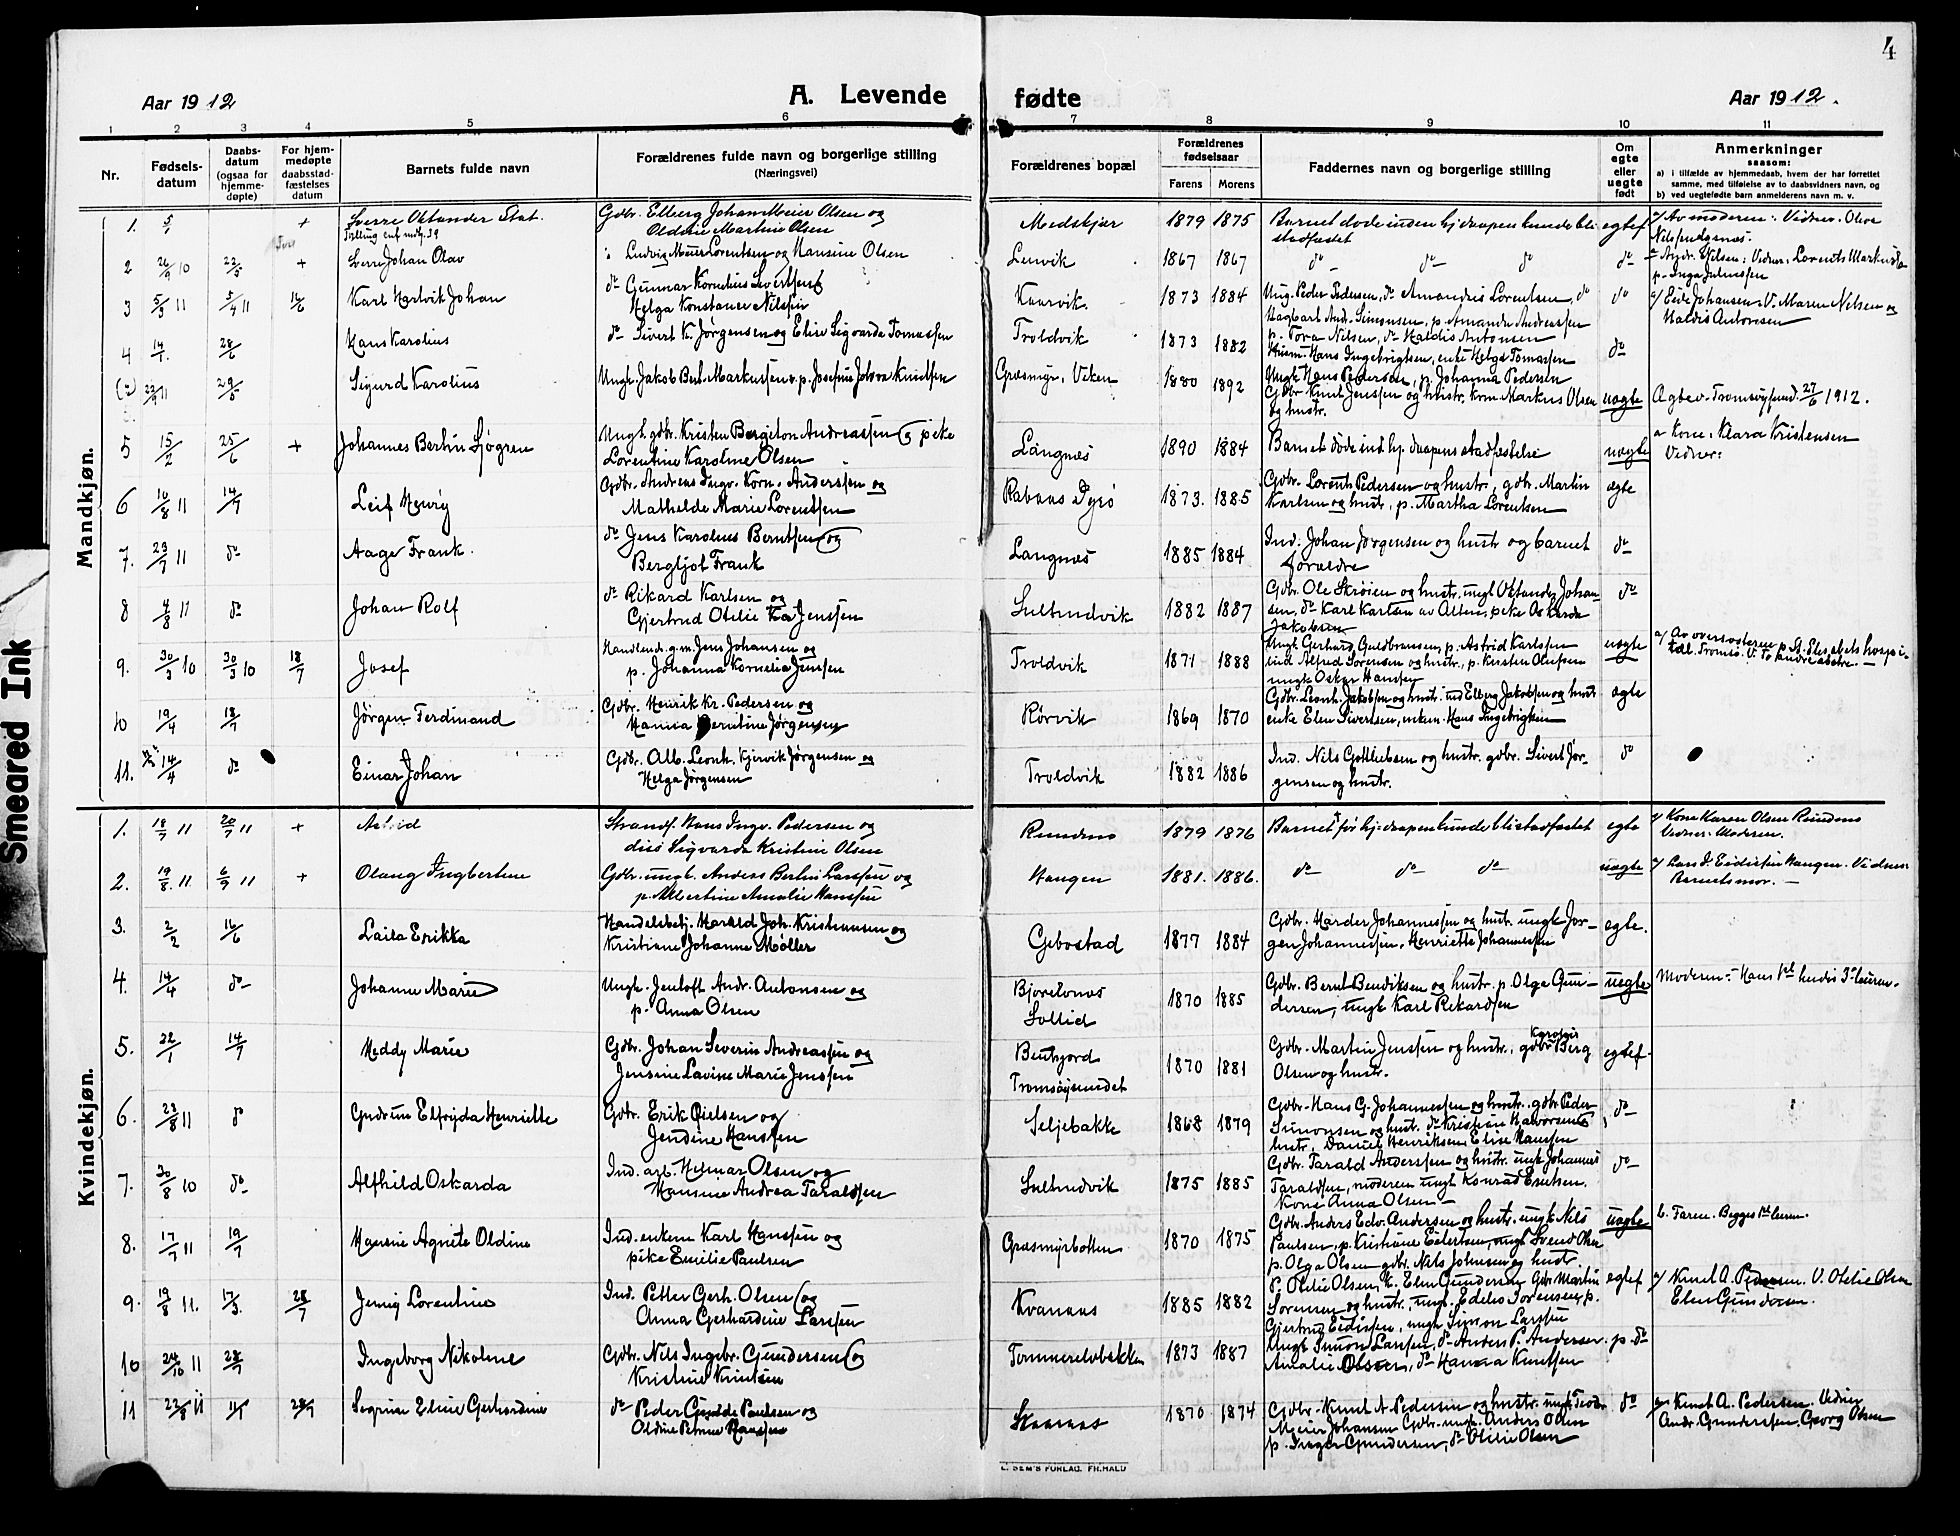 4
Aar 1912
A. Levende
fødte
Aar 1912.
1 2 3 4 5 6 7 8 9 10 11
Nr.
Fødsels-
datum
Daabs-
datum
(ogsaa for
hjemme-
døpte)
For hjem-
medøpte
daabsstad-
fæstelses
datum
Barnets fulde navn
Forældrenes fulde navn og borgerlige stilling
(Næringsvei)
Forældrenes bopæl
Forældrenes
fødselsaar
Farens Morens
Faddernes navn og borgerlige stilling
Om
egte
eller
uegte
født
Anmerkninger
saasom:
a) i tilfælde av hjemmedaab, hvem der har forrettet
samme, med tilføielse av to daabsvidners navn, og
b) ved uegtefødte barn anmelderens navn m. v.
Mandkjøn.
1. 5/1 + Sverre Oktander
Gdbr. Elberg Johan Meier Olsen og
Oldine Martine Olsen
Medskjær 1879 1875
Barnet døde inden hj.daapen kunde bli
stadfæstet
egtef
a/ Av moderen: Vidner: Olive
2 26/9 10 22/5 + Sverre Johan Olav
Ludvig Meier Lorentsen og Hansine Olsen
Lenvik 1867 1867 do do do do
3 5/3 11 5/4 11 16/6 Karl Hartvik Johan
do Gunnar Kornelius Sivertsen
Helga Konstance Nilssen
Kaarvik 1873 1884
Ung. Peder Pedersen, do Amandus Lorentsen, do
Hagbart And. Simonsen, p. Amanda Andreassen
p. Tora Nelsen, do Haldis Antonsen
do
a/ Eide Johansen: V. Maren Nelsen og
Haldis Antonsen
4 14/1. 28/6 Hans Karolius
do Sivert K. Jørgensen og Elise Sigvarda Tomassen
Troldvik 1873 1882
Hans Ingebrigtsen, enke Helga Tomassen
do
29/5 Sigurd Karolius
Ungk. Jakob Berh. Markussen o. p. Josefine Jolova Knudsen
Græsmyr, Veken 1880 1892
Ungk Hans Pedersen, p. Johanna Pedersen
Gdbr Knut Jenssen og hustr. krm. Markus Olsen
og hustr.
uegte
Agbev. Tromsøysund. 27/6 1912.
5 15/2 25/6 + Johannes Berlin Sjøgren
Ungk. gdbr. Kristen Bergiton Andreassen og pike
Lorentine Karoline Olsen
Langnes 1890 1884
Barnet døde ind. hj. daapens stadfæstelse
uegte
a Kone: Klara Kristensen
Vidner:
6 10/8 11 14/7 Leif Henry
Gdbr. Andreas Ingv. Korn. Anderssen og
Mathelde Marie Lorentsen
Rabaas 1873. 1885
Gdbr. Lorents Pedersen og hustr, gdbr. Martin
Karlsen og hustr, p. Martha Lorentsen
egte
7. 29/7 11 do Aage Frank.
do Jens Karolius Berntsen og
Bergljot Frank
Langnes 1885 1884
Ind. Johan Jørgensen og hustr og barnet
forældre
do
8 4/8 11 do Johan Rolf
do Rikard Karlsen og
Gjertrud Otelie Jenssen
Sultindvik 1882 1887
Gdbr. Ole Skrøien og hustr. ungk Oktander Johan-
sen, do Karl Karlsen av Alten, pike Oskarda
Jakobsen
do
9. 30/3 10 30/3 10 18/7 Josef
Handlende g. m. Jens Johansen og
p. Johanna Kornelia Jenssen
Troldvik 1871 1888
Ungk Gerhard Guldbransen, p. Astrid Karlssen
ind Alfred Sørensen og hustr., p. Kirsten Olufsen
ungk Oskar Hansen
uegte
a/ Av oversøsteren p. St. Elisabets hospi-
tal. Tromsø. V. To andre søstre.
10 19/4 18/7 Jørgen Ferdinand
Gdbr. Henrik Kr. Pedersen og
Hanna Berntine Jørgensen
Rørvik 1869 1870
Gdbr. Leonh. Jakobsen og hustr. ind Elberg Jakobsen og hustr
enke Elen Sivertsen, enkem. Hans Ingebrigtsen
egte
11. 14/4 do Einar Johan
Gdbr. Alb. Leonh. Kjervik Jørgensen og
Helga Jørgensen
Troldvik 1882 1886
Ind. Nils Gottliebsen og hustr. gdbr. Sivert Jør-
gensen og hustr.
do
Kvindekjøn.
1. 18/7 11 20/7 11 + Astrid
Strands. Hans Ingv. Pedersen og
Sigvarda Kristine Olsen
Reindnes 1879 1876
Barnet † før hj.daapen kunde bli stadfæstet
egte
a/ Kone Karen Olsen Reindnes
Vidner: Moderen.
2. 19/8. 11 6/9 11 + Olaug Ingbertine
Gdbr. ungk. Anders Berlin Larssen og
p. Albertine Amalie Hanssen
Haugen 1881. 1886. do do do uegte
a/ Lars J. Eidissen Haugen. Vidner
Barnets mor.
3. 2/2 16/6 Laila Erikka
Handelsbetj. Harald Joh. Kristiansen og
Kristiane Johanne Møller
Gebostad 1877 1884
Gdbr. Harder Johannessen og hustr. ungk Jør-
gen Johannessen, Henriette Johannessen
egte.
4. 14/4 do Johanne Marie
Ungk. Jentoft Andr. Antonsen og
p. Anna Olsen
Bjorelvnes
Sollid
1870 1885
Gdbr. Bernt Bendiksen og hustr. p. Olga Gun-
dersen, ungk Karl Rikardsen
uegte
Moderen: Hans 1ste hendes 3die leierm.
5. 22/1 14/7 Heddy Marie
Gdbr. Johan Severin Andreassen og
Jensine Lavine Marie Jenssen
Bentsjord
Tromsøysundet
1870 1881
Gdbr. Martin Jenssen og hustr., gdbr Karolius Berg
Olsen og hustr.
egtef
6. 23/8 11 do Gudrun Elfrida Henriette
Gdbr. Erik Nielsen og
Jendine Hanssen
Seljebakke 1868 1879
Gdbr. Hans G. Johannessen og hustr. gdbr Peder
Simonsen og hust. do Kristian Havorsen
hustr, Daniel Henriksen, Elise Hansen
do
7. 30/8 10 do Alfhild Oskarda
Ind. arb. Helmar Olsen og
Hansine Andrea Taraldsen
Sultindvik 1875 1885
Gdbr. Tarald Anderssen og hustr. ungk Johannes
Taraldsen, moderen ungk Konrad Knutsen.
Kone Anna Olsen
do
8. 17/7 11 19/7 Hansine Agnete Oldine
Ind. enkem Karl Hanssen og
pike Emilie Paulsen
Græsmyrbotten 1870 1875
Gdbr. Anders Edv. Andersen og hustr. ungk Nils
Paulsen, p. Kristiane Eilertsen, ungk Svend Olsen
p. Olga Olsen gdbr. Nils Johnsen og hustr.
uegte
b. Faren. Begges 1ste leierm.
9. 19/8 11. 17/3. 28/7 Jenny Lorentine
Ind. Petter Gerh. Olsen og
Anna Gerhardine Larssen
Kvanaas 1885 1882
p. Otelie Olsen, K. Elen Gundersen Gdbr Martin
Sørensen og hustr., ungk. Edelis Sørensen, p.
Gjertrud Eidissen, ungk Simon Larssen
egtef
a/ Knut A. Pedersen. V. Otelie Olsen
Elen Gundersen.
10 24/10 11 28/7 Ingeborg Nikoline
Gdbr. Nils Ingebr. Gundersen og
Kristine Knutsen
Tommerelvbakken 1873 1887
Ungk Simon Larssen, do Anders P. Andersen. p.
Amalie Olsen, do Hanna Knutsen
do
11 22/8 11 28/7 Signine Elise Gerhardine
do Peder Paulsen og
Oldine Petrine Hanssen
Skaanes 1870 1874
Gdbr. Knut A Pedersen og hustr. ungk Teodor
Meier Johansen Gdbr. ungk. Anders Olsen
p. Inger Gundersen, do Otelie Olsen
do
a/ Knut A. Pedersen. Vidner
Andr. Gunderssen. Georg Olsen
FORLAG. FR.HALD
Smeared Ink